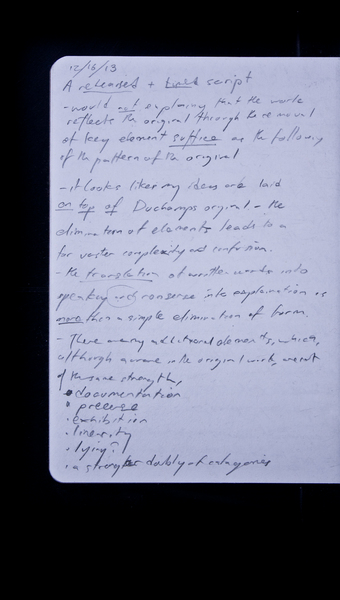 12/16/13
A released + timed script
- would not explaining that the work
reflects the original through the removal
of key element suffice as the following
of the pattern of the original
- it looks like my ideas are laid
on top of Duchamps orginal - the
elimination of elements leads to a
far vaster complexity and confusion.
- the translation of written words into
speaking and nonsense into explanation is
more than a simple elimination of form.
- There are many additional elements, which,
although were in the original work, weren't
of the same strength,
• documentation
• precise
• exhibition
• linearity
• lying?
• a stronger duality of catagories